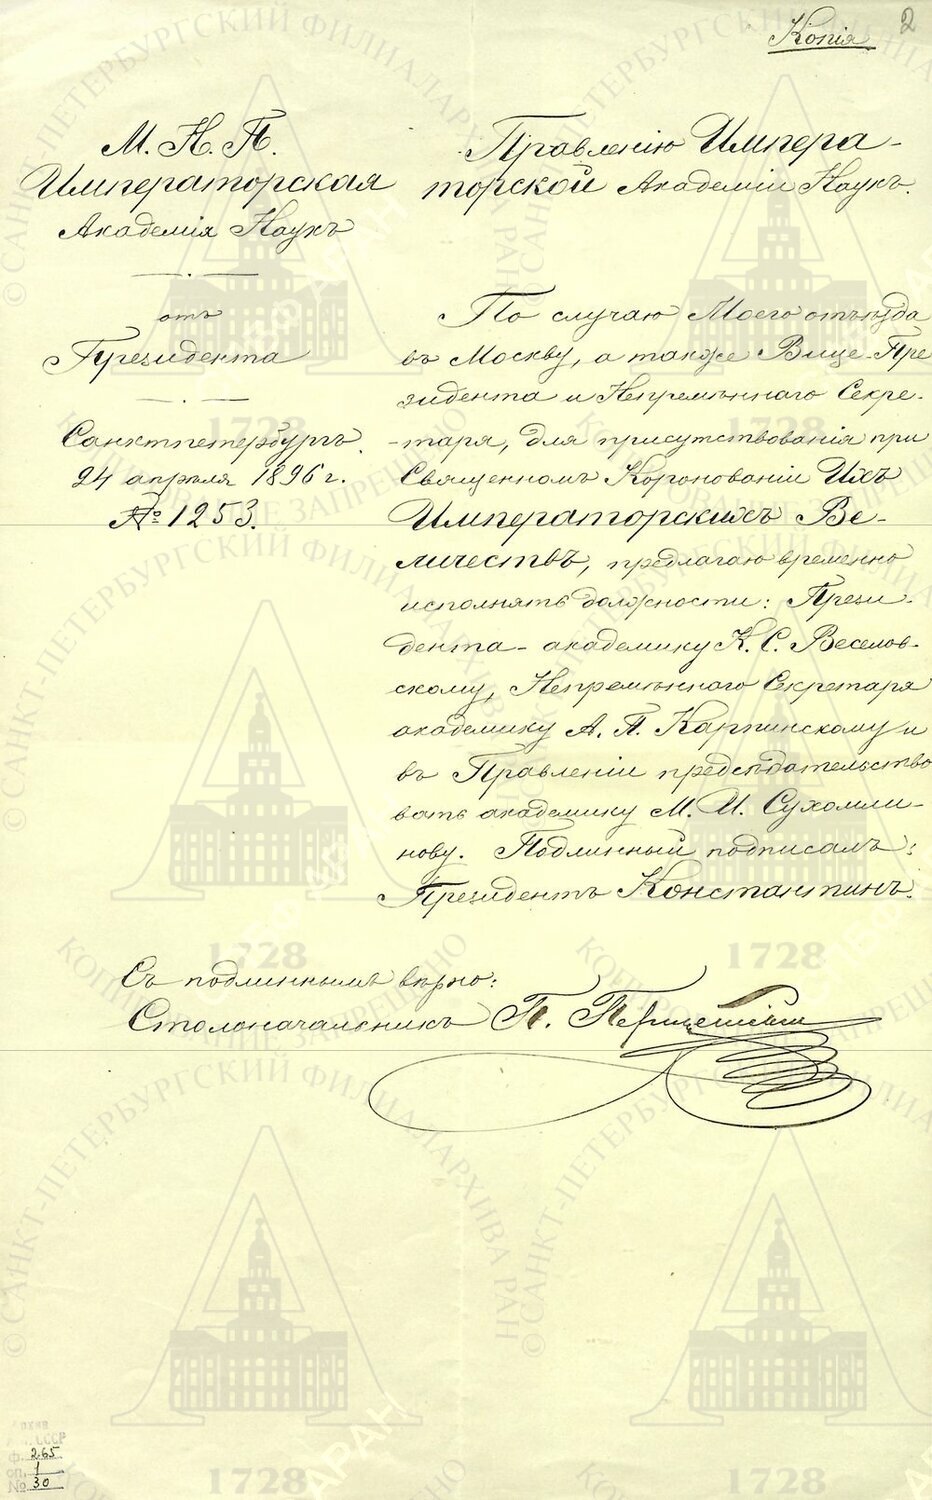 Копія
2
М. Н. П.
Императорская
Академія Наукъ
отъ
Президента
Санктпетербургъ.
24 апрѣля 1896 г.
№ 1253.
Правленію Импера-
торской Академіи Наукъ.
По случаю Моего отъѣзда
въ Москву, а также Вице-Пре
зидента и Непремѣннаго Секре-
-таря, для присутствованія при
Священномъ Коронованіи Ихъ
Императорскихъ Ве-
личествъ, предлагаю временно
исполнять должности: Прези-
дента - академику К. С. Веселов-
скому, Непремѣннаго Секретаря
академику А. П. Карпинскому и
въ Правленіи предсѣдательство
вать академику М. И. Сухомли-
нову. Подлинный подписалъ:
Президентъ Константинъ.
Съ подлиннымъ вѣрно:
Столоначальникъ П.
Ф. 265
оп. 1
№ 30
© САНКТ-ПЕТЕРБУРГСКИЙ ФИЛИАЛ АРХИВА РАН
КОПИРОВАНИЕ ЗАПРЕЩЕНО
1728